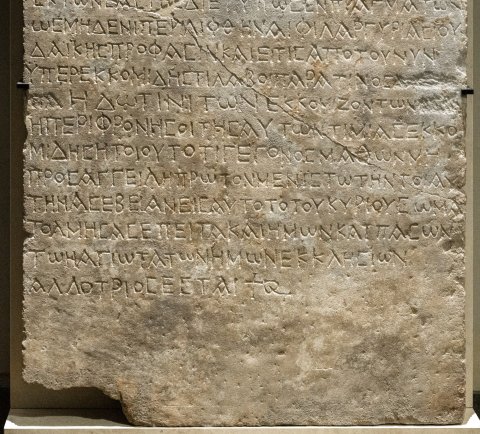 ΦΙΛΑΡΓΥΡΙΑΣ
ΔΑΙΚΗΣΠΡΟΦΑΣΙΝΚΑΙΕΙΤΙΣΑΠΟΤΟΥΝΥΝ
ΥΠΕΡΕΚΚΟΜΙΔΗΣΤΙΛΑΒΟΙΠΑΡΑΤΙΝΟΣ
ΗΔΩΤΙΝΙΤΩΝΕΚΚΟΜΙΖΟΝΤΩΝ
ΗΠΕΡΙΦΡΟΝΗΣΟΙΤΗΣΑΥΤΩΝΤΙΜΑΣΕΚΚΟ
ΜΙΔΗΣΗΤΟΙΟΥΤΟΤΙΓΕΓΟΝΟΣΜΑΘΩΝΜΗ
ΠΡΟΣΑΓΓΕΙΛΗΠΡΩΤΟΝΜΕΝΙΣΤΩΤΗΝΤΟΙΑΥ
ΤΗΝΑΣΕΒΕΙΑΝΕΙΣΑΥΤΟΤΟΤΟΥΚΥΡΙΟΥΣΩΜΑ
ΤΟΛΜΗΣΑΣΕΠΕΙΤΑΚΑΙΗΜΩΝΚΑΙΠΑΣΩΝ
ΤΩΝΑΓΙΩΤΑΤΩΝΗΜΩΝΕΚΚΛΗΣΙΩΝ
ΑΛΛΟΤΡΙΟΣΕΣΤΑΙ